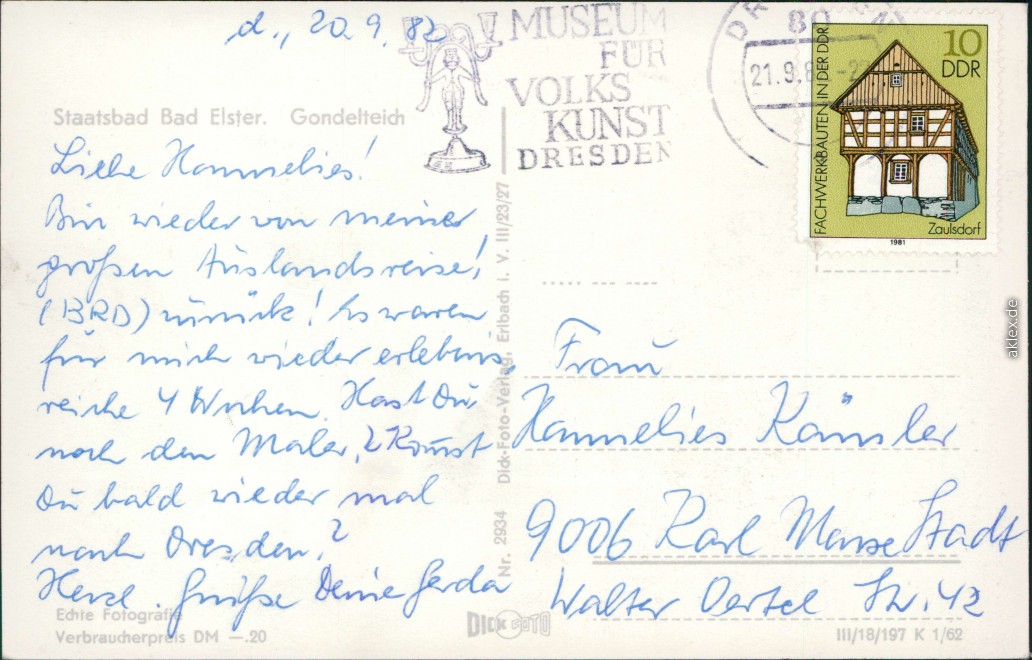 d., 20.9.82
Staatsbad Bad Elster. Gondelteich
Liebe Hannelies!
Bin wieder von meiner
großen Auslandsreise!
(BRD) zurück! Es waren
für mich wieder erlebnis
reiche 4 Wochen. Hast Du
noch den Maler? Kommst
Du bald wieder mal
nach Dresden?
Herzl. Grüße Deine Gerda
Echte Fotografie
Verbraucherpreis DM —.20
Nr. 2934 Dick-Foto-Verlag, Erlbach i. V. III/23/27
MUSEUM
FÜR
VOLKS
KUNST
DRESDEN
80
21.9.8
10
DDR
FACHWERKBAUTEN IN DER DDR
Zaulsdorf
1981
Frau
Hannelies Känsler
9006 Karl Marx Stadt
Walter Oertel Str. 42
DICK FOTO
III/18/197 K 1/62
aklex.de